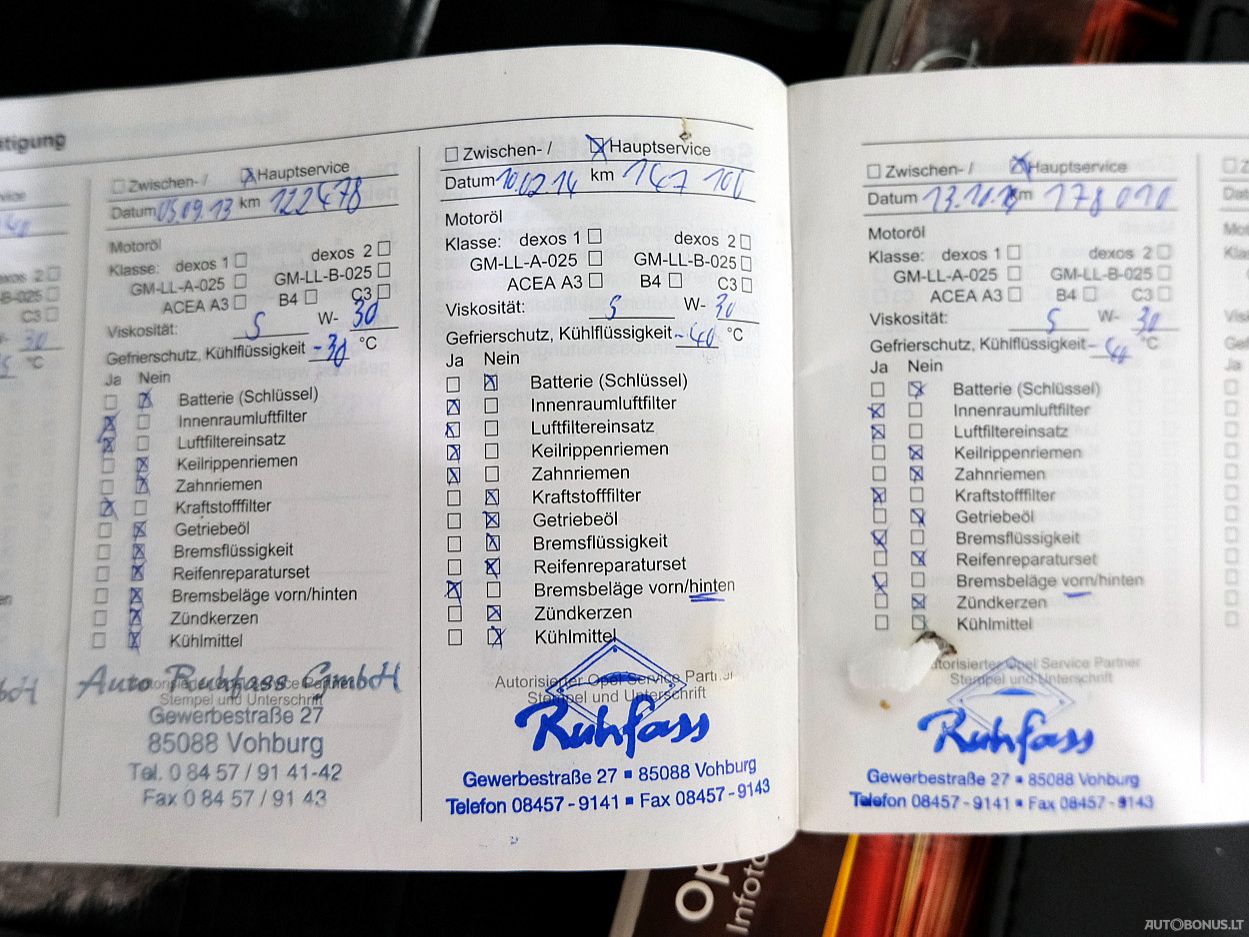 stigung
Zwischen- / Hauptservice
Datum 05.09.13 km 122478
Motoröl
Klasse: dexos 1 dexos 2
GM-LL-A-025 GM-LL-B-025
ACEA A3 B4 C3
Viskosität: 5 W- 30
Gefrierschutz, Kühlflüssigkeit -30 °C
Ja Nein
Batterie (Schlüssel)
Innenraumluftfilter
Luftfiltereinsatz
Keilrippenriemen
Zahnriemen
Kraftstofffilter
Getriebeöl
Bremsflüssigkeit
Reifenreparaturset
Bremsbeläge vorn/hinten
Zündkerzen
Kühlmittel
Autorisierter Opel Service Partner
Stempel und Unterschrift
Auto Ruhfass GmbH
Gewerbestraße 27
85088 Vohburg
Tel. 0 84 57 / 91 41-42
Fax 0 84 57 / 91 43
Zwischen- / Hauptservice
Datum 10.02.14 km 147 100
Motoröl
Klasse: dexos 1 dexos 2
GM-LL-A-025 GM-LL-B-025
ACEA A3 B4 C3
Viskosität: 5 W- 30
Gefrierschutz, Kühlflüssigkeit -40 °C
Ja Nein
Batterie (Schlüssel)
Innenraumluftfilter
Luftfiltereinsatz
Keilrippenriemen
Zahnriemen
Kraftstofffilter
Getriebeöl
Bremsflüssigkeit
Reifenreparaturset
Bremsbeläge vorn/hinten
Zündkerzen
Kühlmittel
Autorisierter Opel Service Partner
Stempel und Unterschrift
Ruhfass
Gewerbestraße 27 ▪ 85088 Vohburg
Telefon 08457 - 9141 ▪ Fax 08457 - 9143
Zwischen- / Hauptservice
Datum 13.10.14 km 178 010
Motoröl
Klasse: dexos 1 dexos 2
GM-LL-A-025 GM-LL-B-025
ACEA A3 B4 C3
Viskosität: 5 W- 30
Gefrierschutz, Kühlflüssigkeit - °C
Ja Nein
Batterie (Schlüssel)
Innenraumluftfilter
Luftfiltereinsatz
Keilrippenriemen
Zahnriemen
Kraftstofffilter
Getriebeöl
Bremsflüssigkeit
Reifenreparaturset
Bremsbeläge vorn/hinten
Zündkerzen
Kühlmittel
utorisierter Opel Service Partner
Stempel und Unterschrift
Ruhfass
Gewerbestraße 27 ▪ 85088 Vohburg
Telefon 08457 - 9141 ▪ Fax 08457 - 9143
Op
Infota
AUTOBONUS.LT